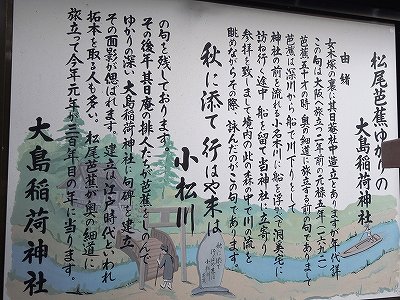 松尾芭蕉ゆかりの
大島稲荷神社
由緒
女木塚の裏に其日庵社中造立とありますが年代詳
この句は大阪へ旅立つ二年前の元禄五年(一六九二)
芭蕉五十才の時、奥の細道に旅立てする前の句でありまして
芭蕉は深川から船で川下りをして
神社の前を流れる小名木川に船を浮べて洞奚宅に
訪ね行く途中船を留て当神社に立寄り
参拝を致しまして境内の此の森の中で川の流を
眺めながらその際、詠んだのがこの句であります。
秋に添て行はや末は
小松川
の句を残しております。
その後年其日庵の俳人たちが芭蕉をしのんで
ゆかりの深い大島稲荷神社に句碑を建立
その面影が偲ばれます。建立は江戸時代といわれ
拓本を取る人も多い。松尾芭蕉が奥の細道に
旅立って今年元年が三百年目の年に当ります。
大島稲荷神社